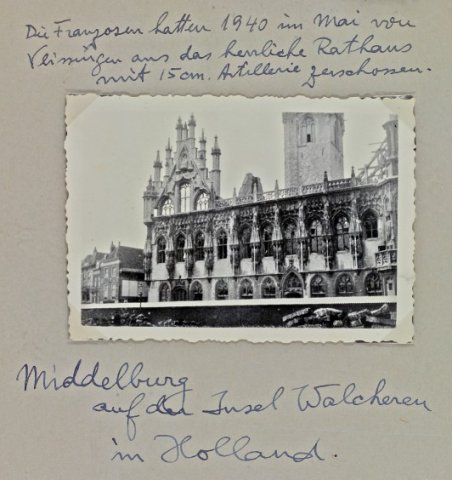 Die Franzosen hatten 1940 im Mai von
Vlissingen aus das herrliche Rathaus
mit 15 cm. Artillerie zerschossen.
Middelburg
auf der Insel Walcheren
in Holland.